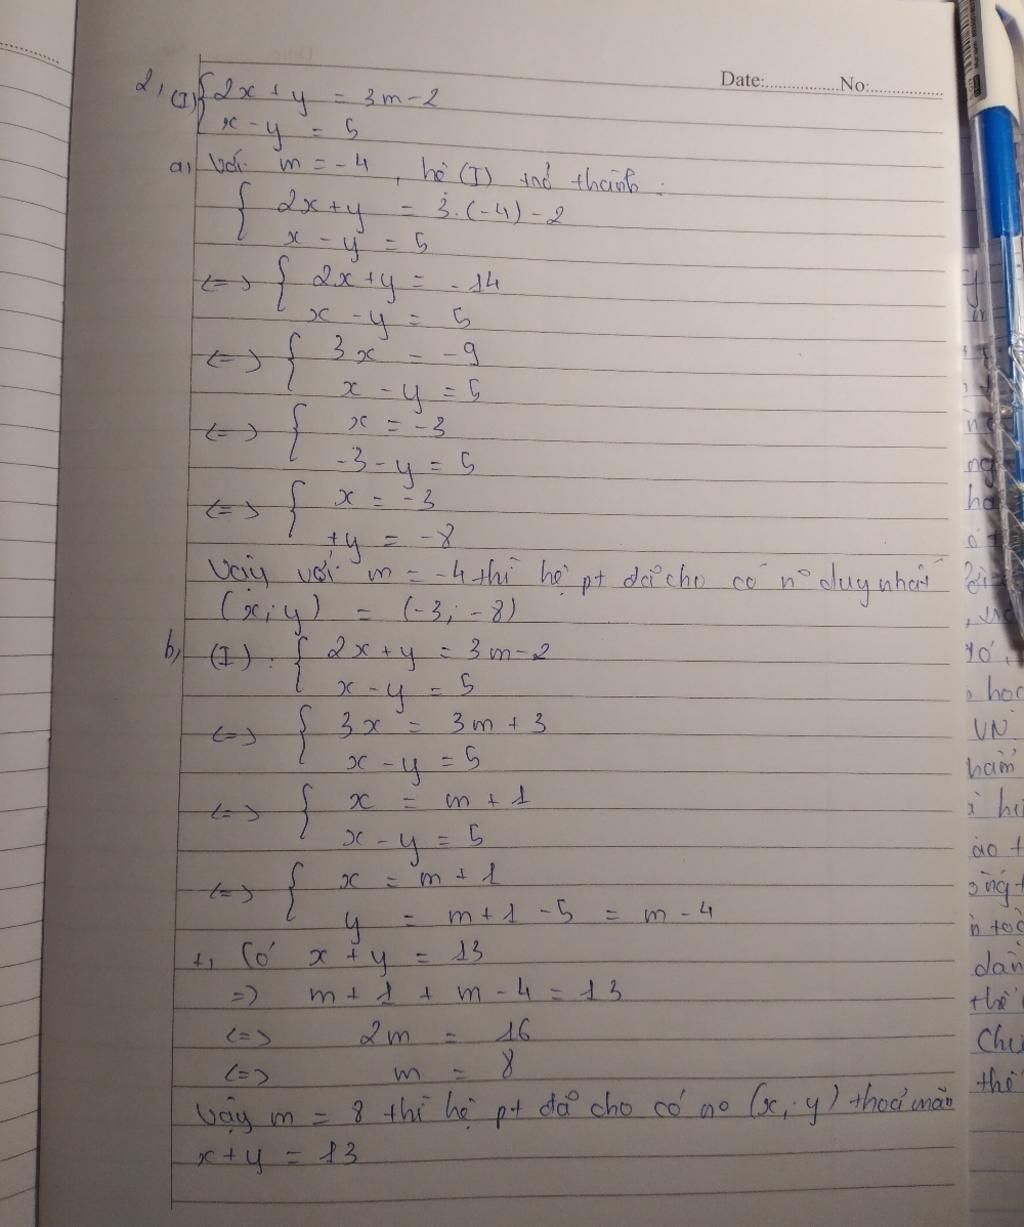 Date:.................No:................
2, (I) { 2x + y = 3m - 2
x - y = 5
a, Với m = -4, hệ (I) trở thành:
{ 2x + y = 3.(-4) - 2
x - y = 5
<=> { 2x + y = -14
x - y = 5
<=> { 3x = -9
x - y = 5
<=> { x = -3
-3 - y = 5
<=> { x = -3
+y = -8
Vậy với m = -4 thì hệ pt đã cho có nº duy nhất
(x; y) = (-3; -8)
b, (I): { 2x + y = 3m - 2
x - y = 5
<=> { 3x = 3m + 3
x - y = 5
<=> { x = m + 1
x - y = 5
<=> { x = m + 1
y = m + 1 - 5 = m - 4
+, Có x + y = 13
=> m + 1 + m - 4 = 13
<=> 2m = 16
<=> m = 8
Vậy m = 8 thì hệ pt đã cho có no (x; y) thoả mãn
x + y = 13